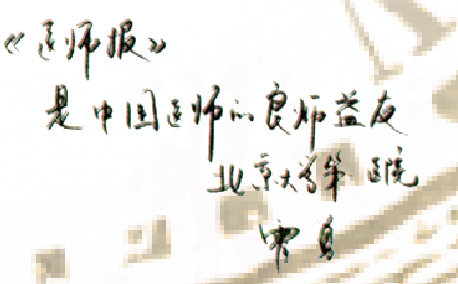 《医师报》
是中国医师的良师益友
北京大学第一医院